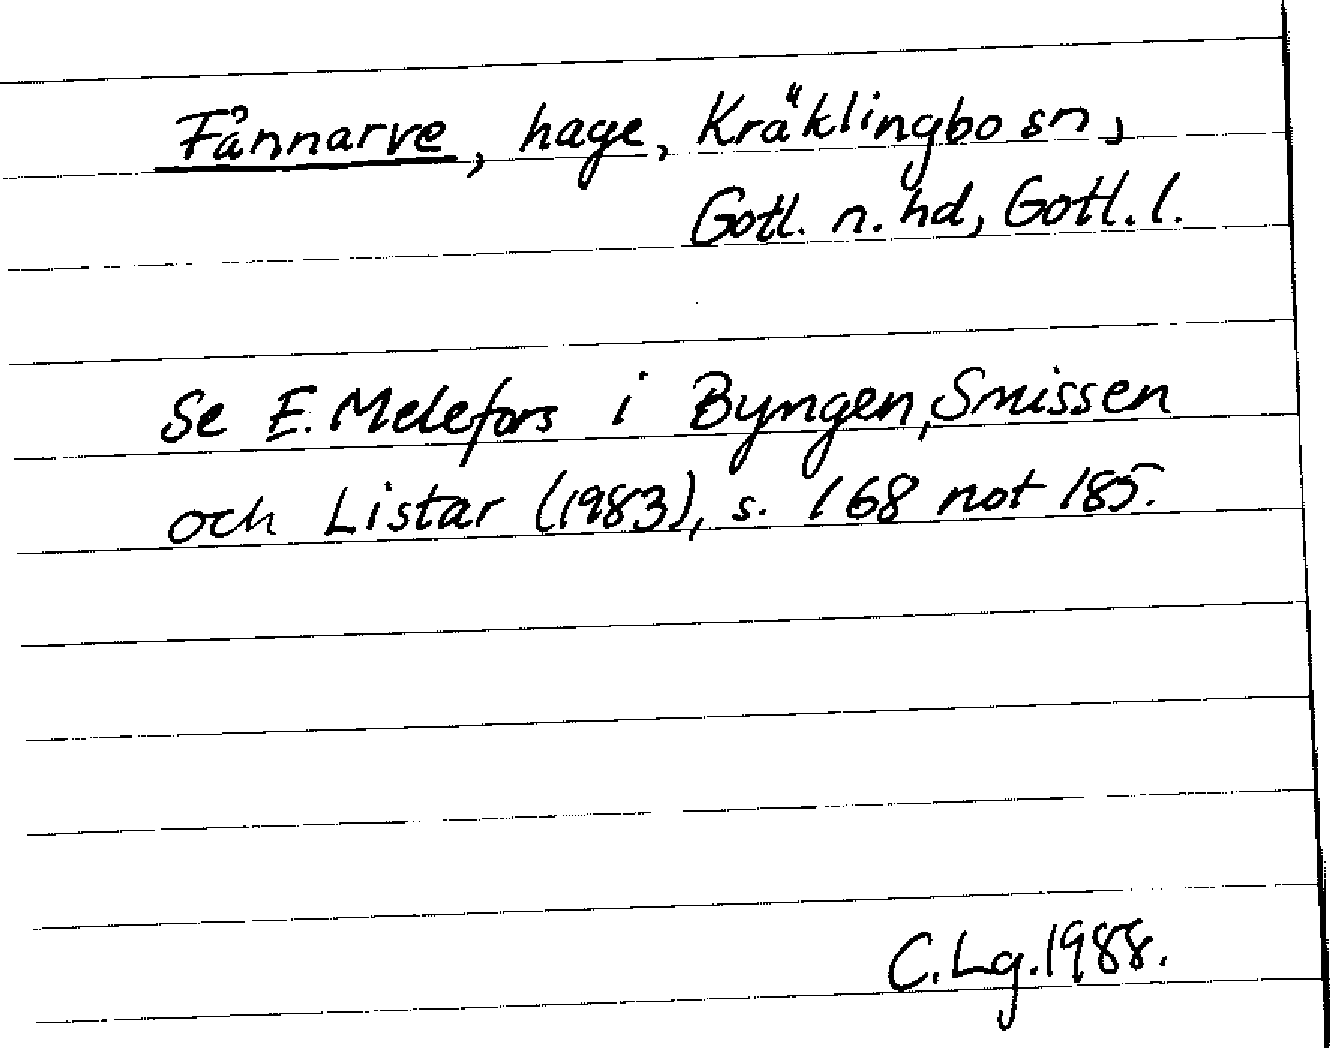 Fånnarve, hage, Kräklingbo sn,
Gotl. n. hd, Gotl. l.
Se E. Melefors i Byngen, Smissen
och Listar (1983), s. 168 not 185.
C. Lg. 1988.